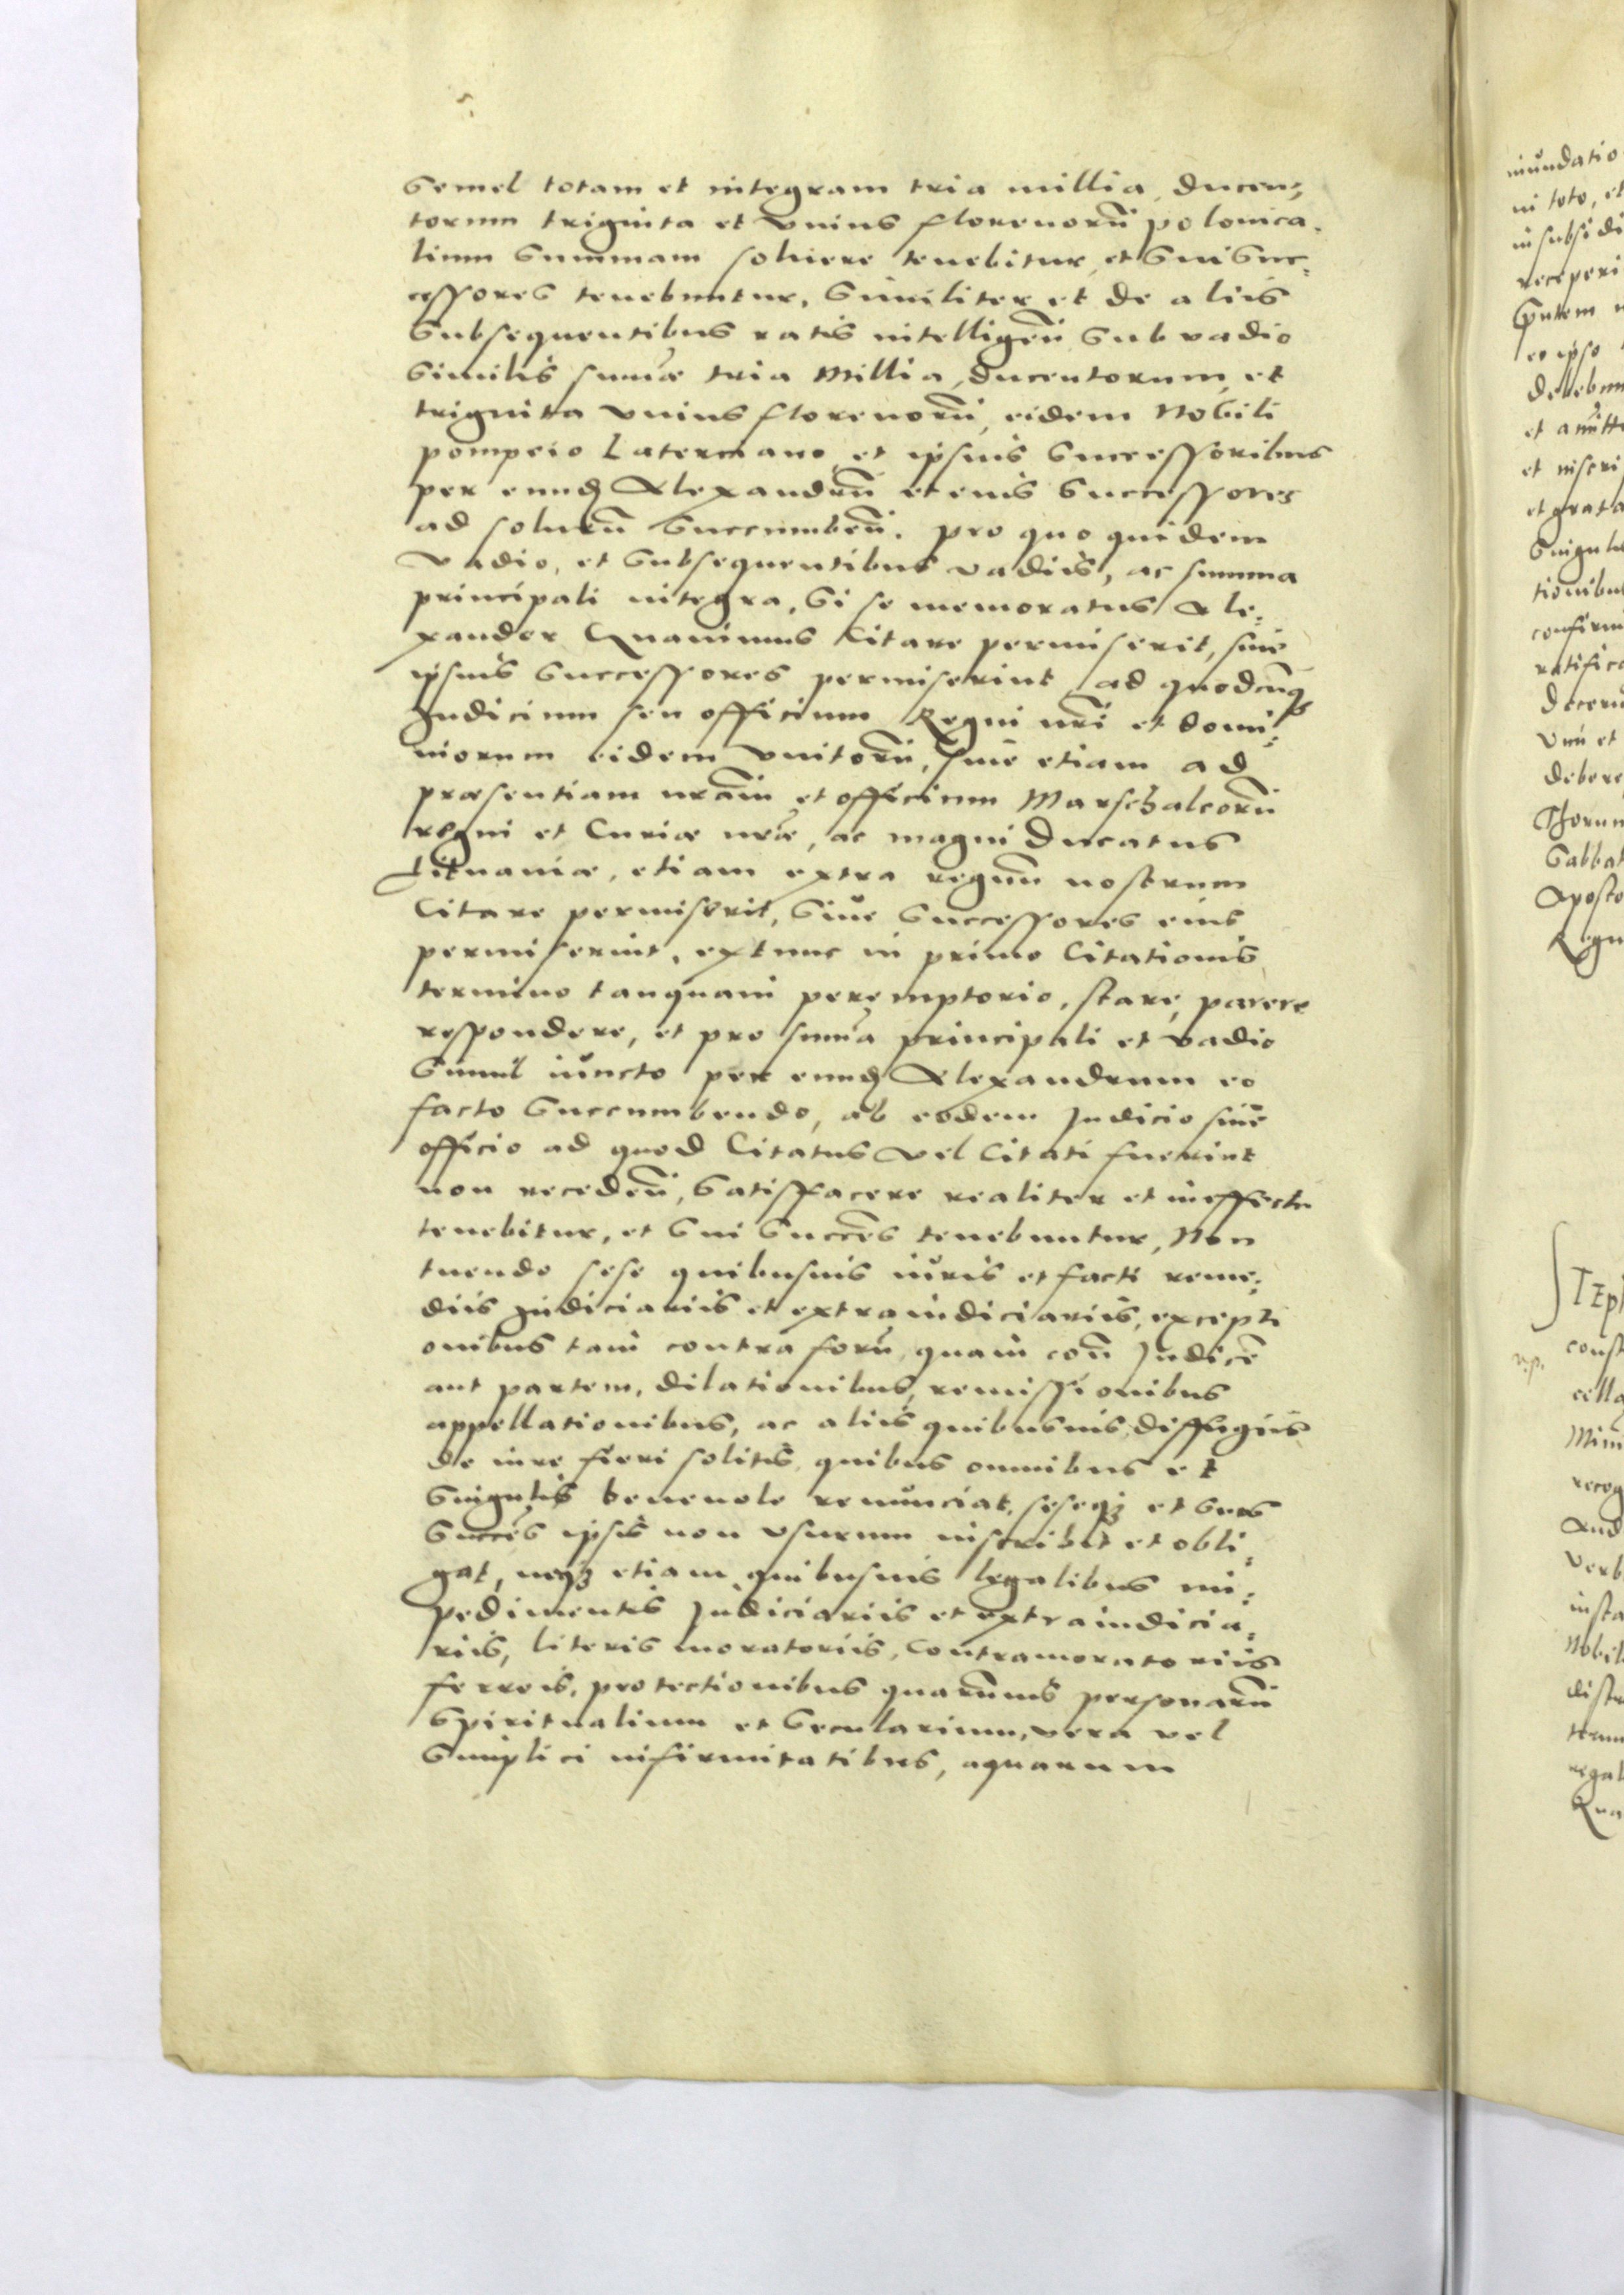 Semel totam et integram tria millia, ducen=
torum triginta et vnius florenorū polonica,
lium Summam soluere tenebitur, et Sui Suc=
cessores tenebuntur, Similiter et de aliis
Subsequentibus ratis intelligēn Sub vadio
Similis sum̄æ tria Millia, ducentorum, et
triginta vnius florenorū, eidem Nobili
pompeio Latermano et ipsius Successoribus
per eund Alexandrū et eius Successores
ad soluēn Succumbēn. pro quo quidem
vadio, et Subsequentibus vadiis, ac summa
principali integra, Si se memoratus Ale=
xander Citare permiserit, siue
ipsius Successores permiserint ad quodcūq
Iudicium seu officium Regni nr̄i et domi=
niorum eidem vnitorū, siue etiam ad
præsentiam nrām et officium Marschalcorū
regni et Curiæ nr̄æ, ac magni Ducatus
Lituaniæ, etiam extra regnū nostrum
Citare permiserit, Siue Successores eius
permiserint, extunc in primo Citationis
termino tanquam peremptorio, stare, parere
respondere, et pro sum̄a principali et vadio
Simul iuncto per eund Alexandrum eo
facto Succumbendo, ab eodem Iudicio siue
officio ad quod Citatus vel Citati fuerint
non recedēn, Satisfacere realiter et in effectu
tenebitur, et Sui Succēs tenebuntur, Non
tuendo sese quibusuis iuris et facti reme=
diis Iudiciariis et extraiudiciariis, excepti
onibus tam contra forū, quam cōn Iudicē
aut partem, dilationibus, remissionibus
appellationibus, ac aliis quibusuis diffugiis
de iure fieri solitis, quibus omnibus et
Singulis beneuole renunciat, seseqʒ et Suos
Succēs ipsis non vsurum inscribit et obli=
gat, neqʒ etiam quibusuis legalibus im=
pedimentis Iudiciariis et extraiudicia=
riis, literis moratoriis, Contramoratoriis
ferreis, protectionibus quarūuis personarū
Spiritualium et Secularium, vera vel
Simplici infirmitatibus, aquarum
inundatio
in toto, et
in subsidi
receperi
eo ipso
debebun
et
et inscri
et grata
Singulis
tionibus
confirm
ratifica
decern
vnū et
debere
Thorun
Sabbat
Aposto
Regn
STEPh
const
cella
recog
And
verb
insta
Nobil
distr
regal